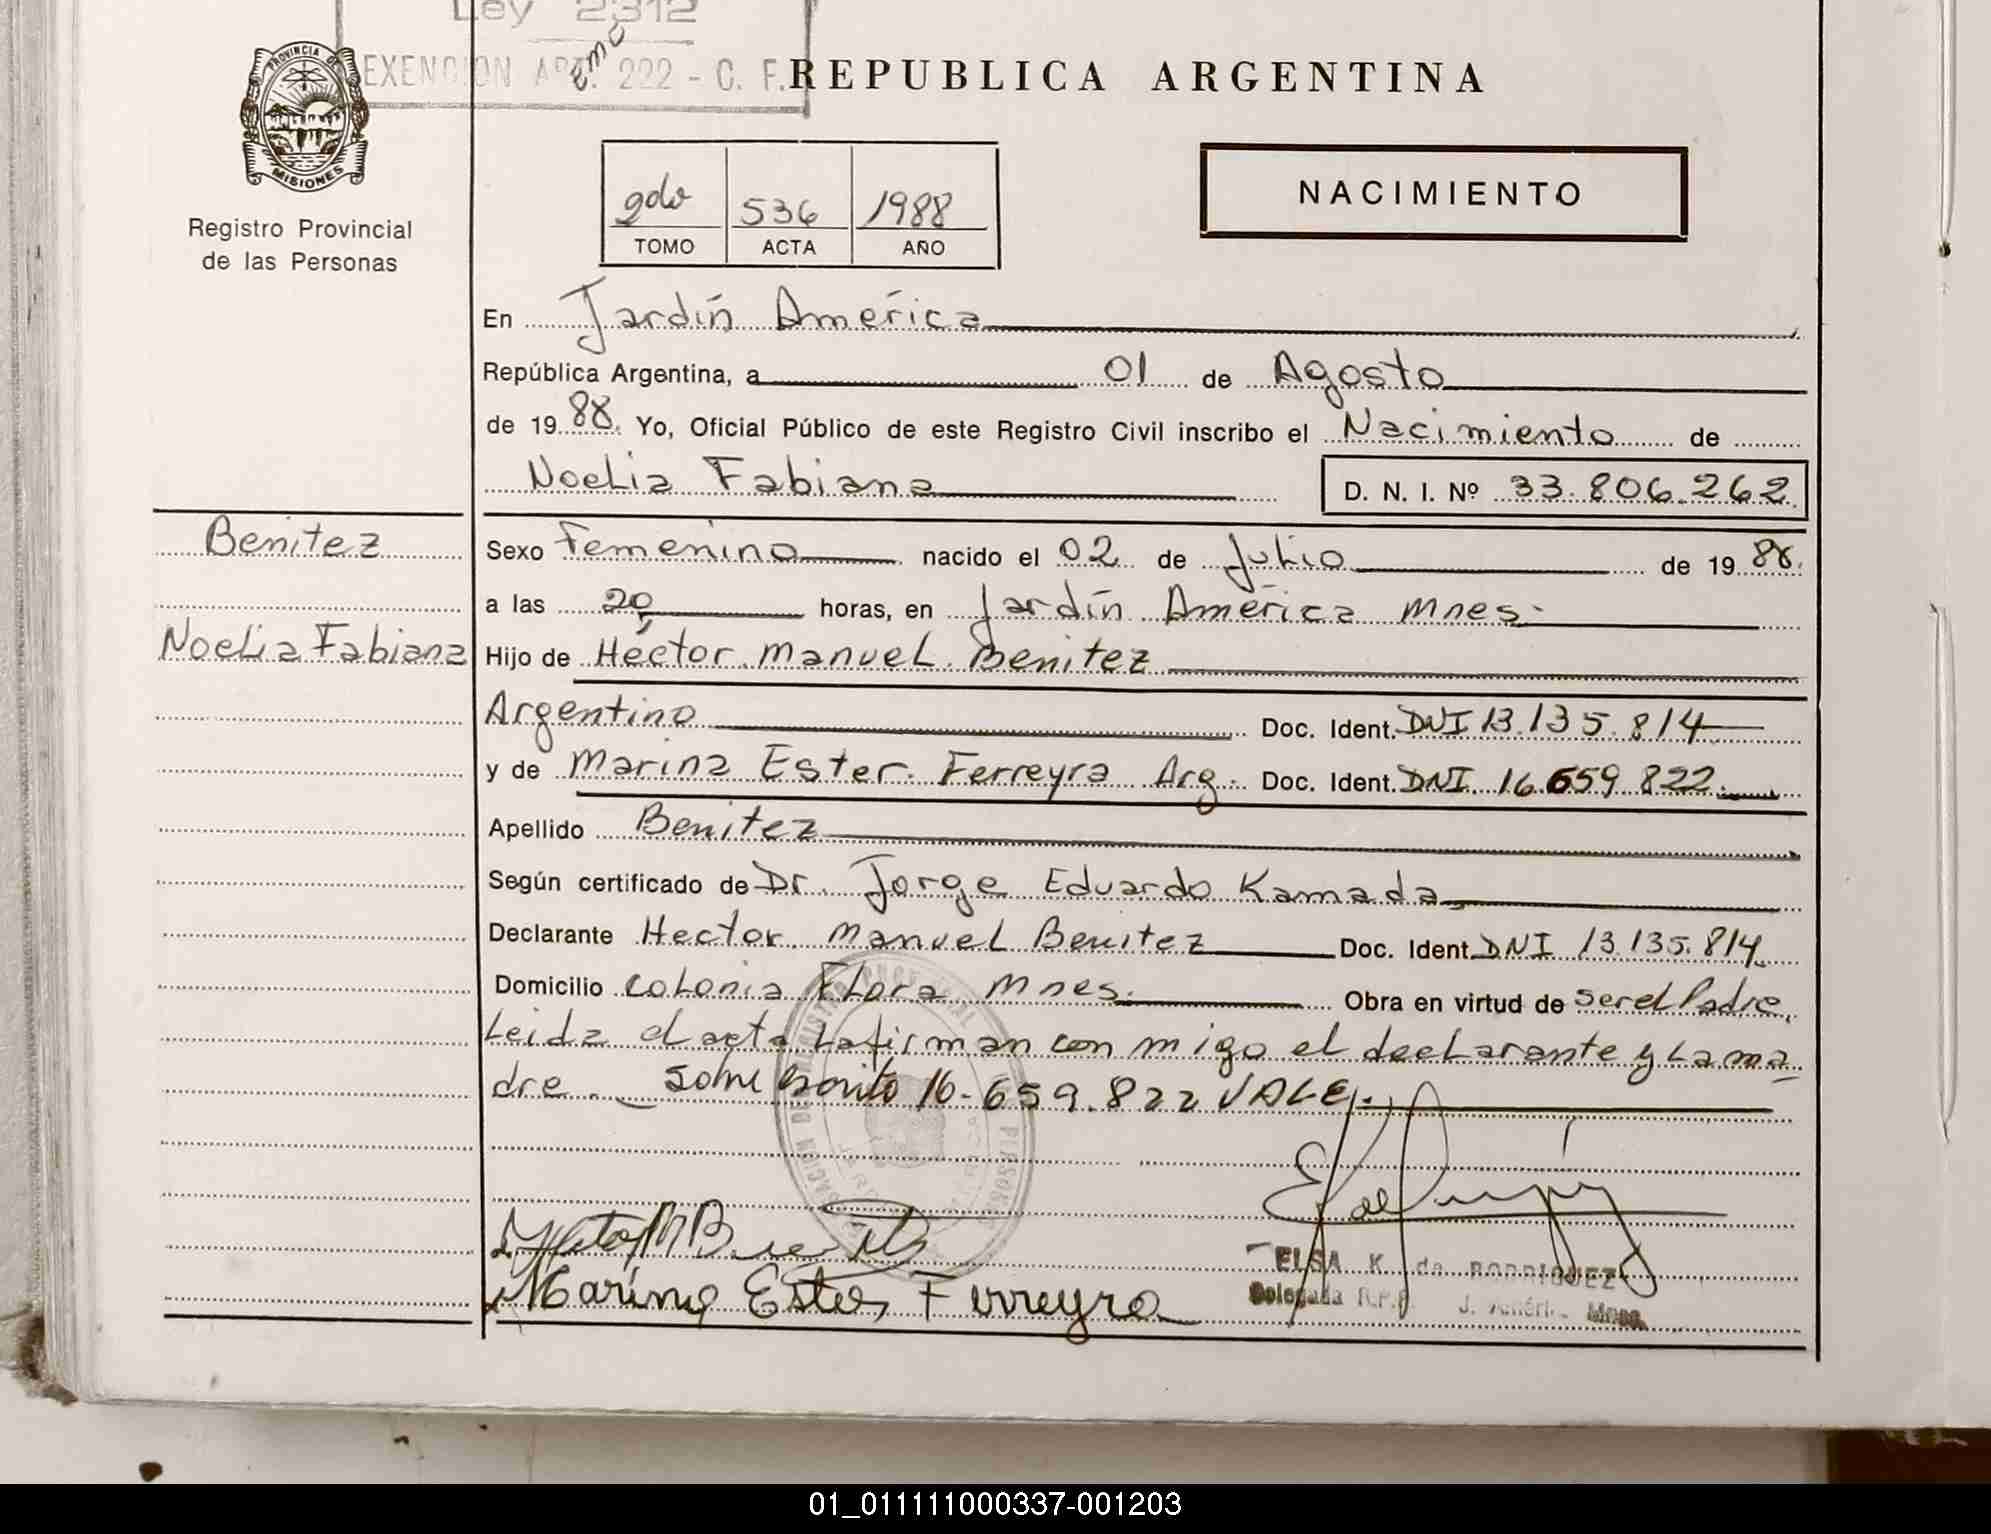 Ley 2312
EXENCION ART. 222 - C. F.
REPUBLICA ARGENTINA
PROVINCIA DE
MISIONES
Registro Provincial
de las Personas
2do 536 1988
TOMO ACTA AÑO
NACIMIENTO
En Jardín América
República Argentina, a 01 de Agosto
de 19 88. Yo, Oficial Público de este Registro Civil inscribo el Nacimiento de
Noelia Fabiana D. N. I. Nº 33.806.262
Benitez
Noelia Fabiana
Sexo Femenino nacido el 02 de Julio de 19 88.
a las 20 horas, en Jardín América Mnes.
Hijo de Héctor Manuel Benitez
Argentino Doc. Ident. DNI 13.135.814
y de Marina Ester Ferreyra Arg. Doc. Ident. DNI 16.659.822
Apellido Benitez
Según certificado de Dr. Jorge Eduardo Kamada
Declarante Hector Manuel Benitez Doc. Ident. DNI 13.135.814
Domicilio Colonia Flora Mnes. Obra en virtud de ser el Padre,
Leida el acta la firman conmigo el declarante y la ma
dre. Sobre escrito 16-659.822 VALE.
Marina Ester Ferreyra
ELSA K. de RODRIGUEZ
Delegada R.P.P. J. América Mnes.
01_011111000337-001203